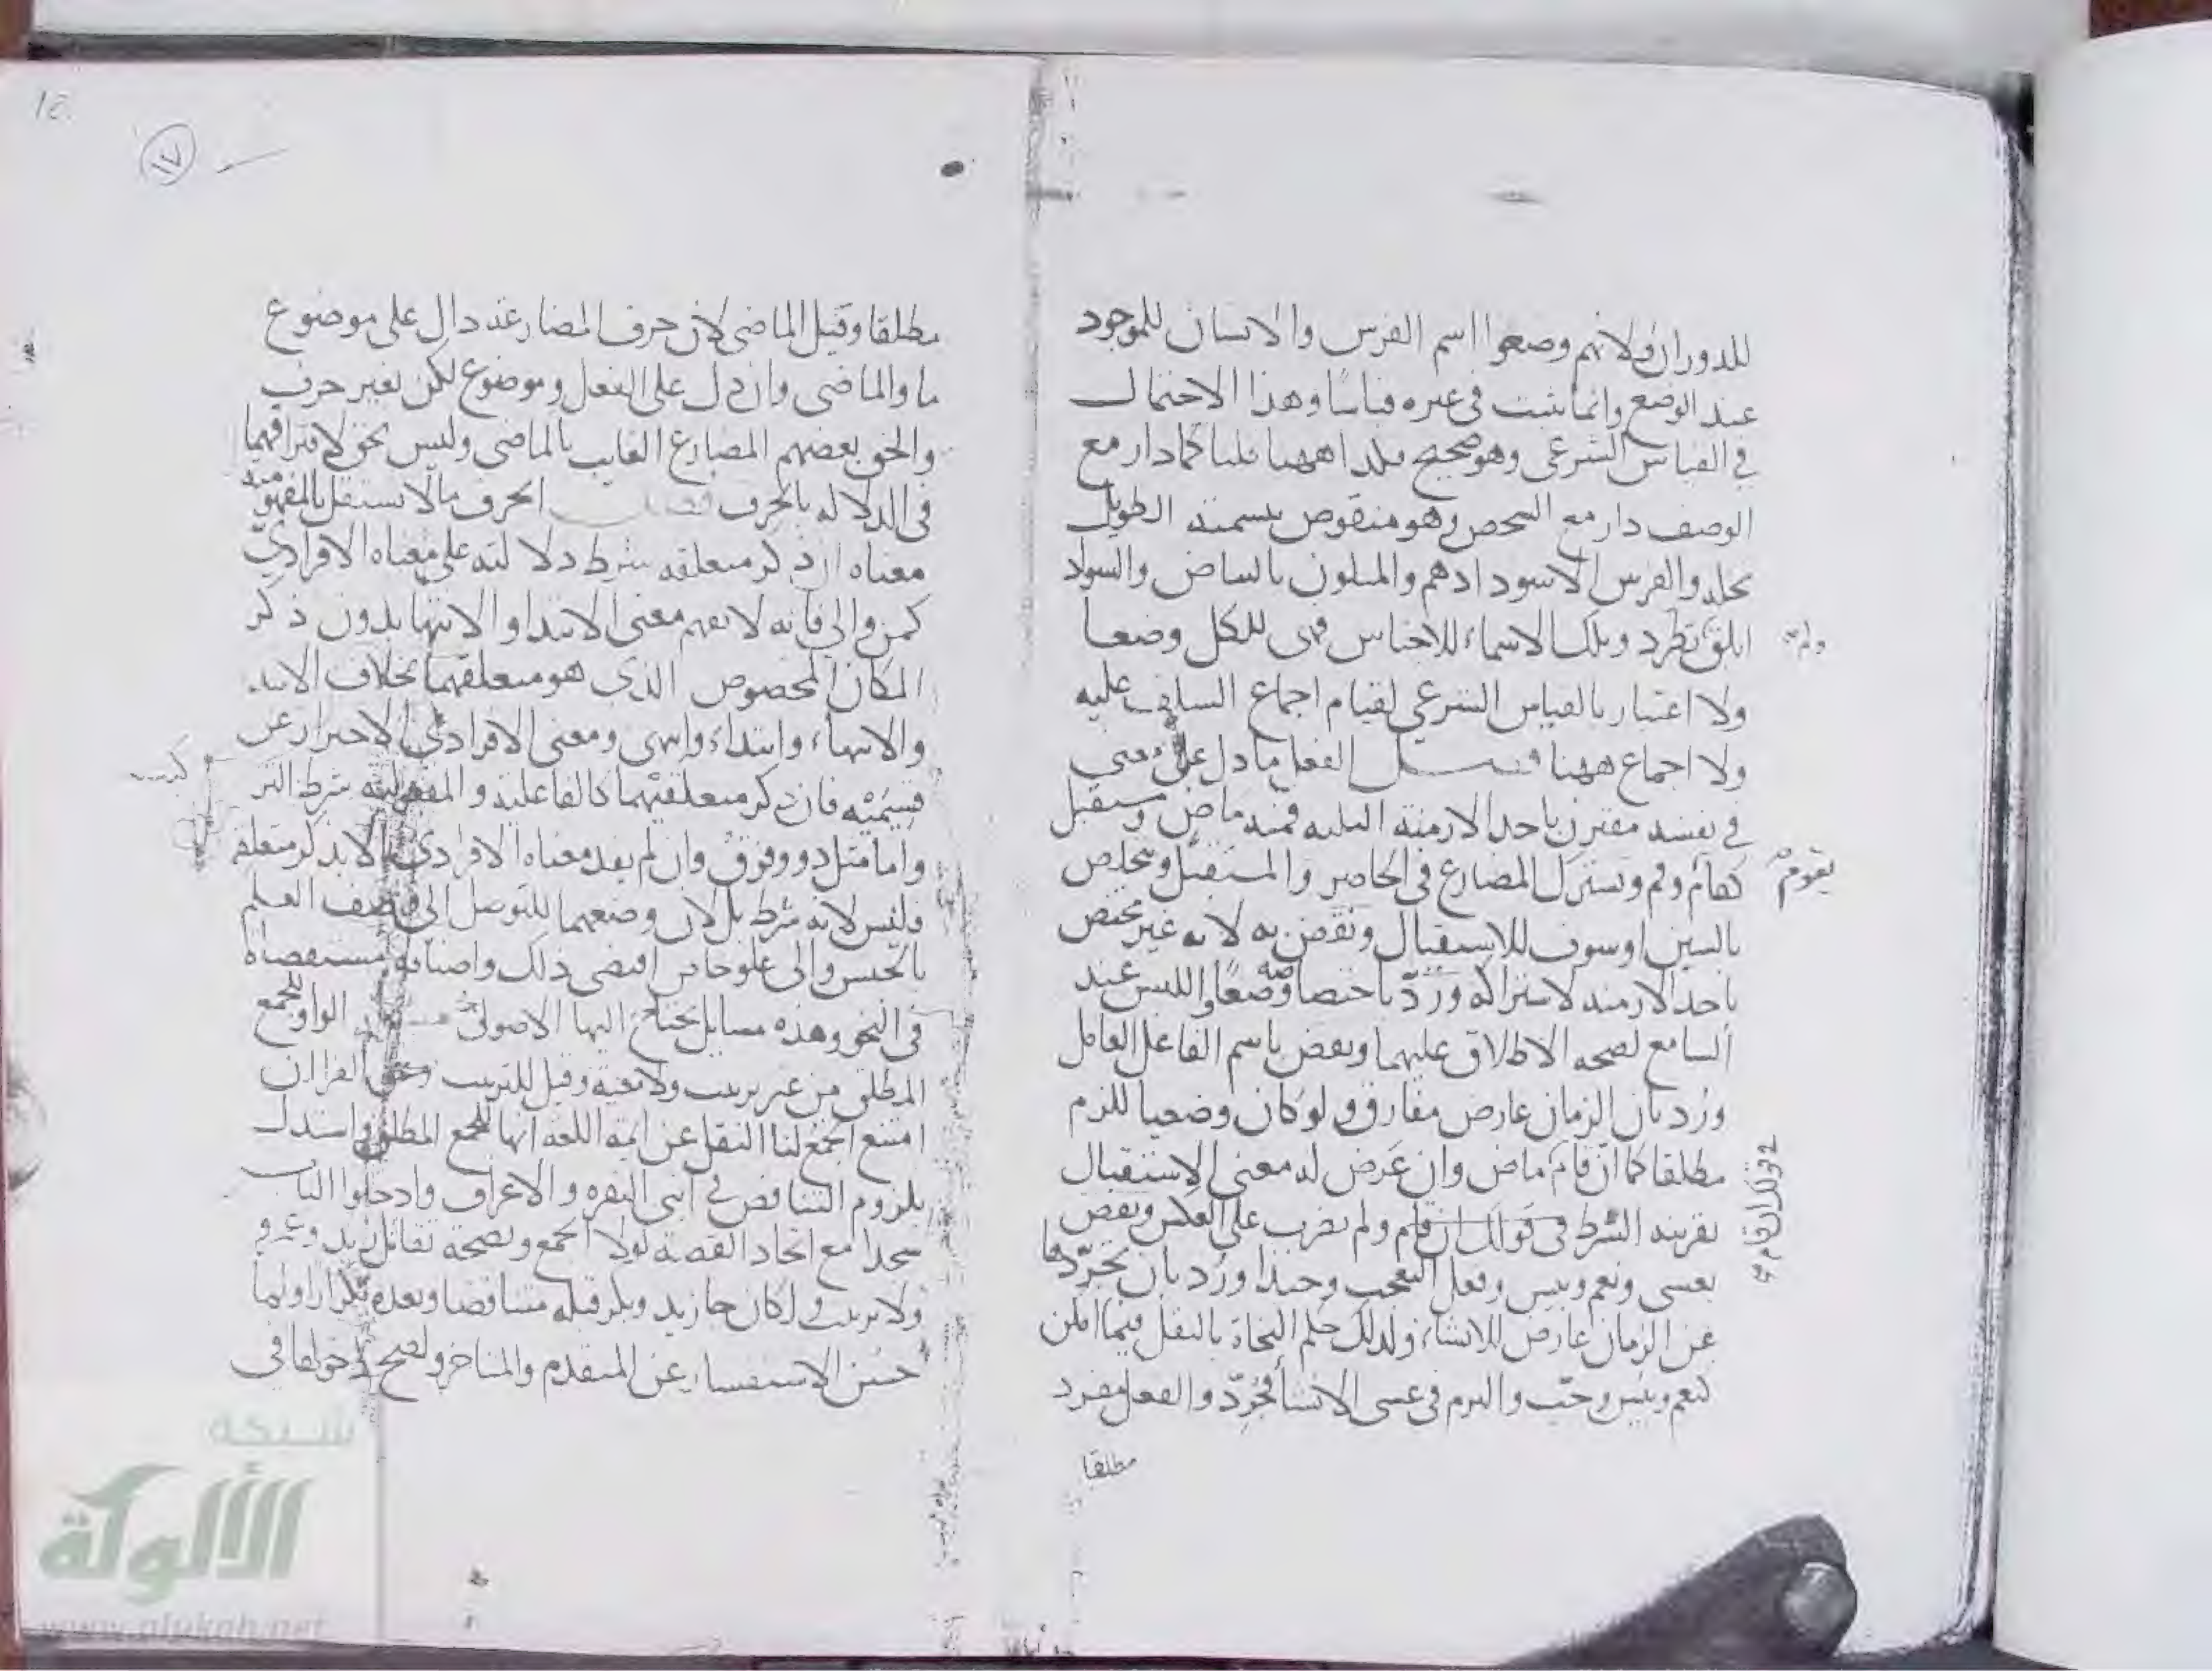 للدوران ولانهم وضعوا اسم الفرس والانسان للموجود
عند الوضع وانما ثبت في غيره قياسا وهذا الاحتمال
في القياس الشرعي وهو صحيح فكذا ههنا قلنا كما دار مع
الوصف دار مع الشخص وهو منقوض بتسمية الطويل
نخلة والفرس الاسود ادهم والمتلون بالبياض والسواد
ابلق تطرد وتلك الاسماء للاجناس فهي للكل وضعا
ولم
ولا اعتبار بالقياس الشرعي لقيام اجماع السلف عليه
ولا اجماع ههنا فصل الفعل ما دل على معنى
في نفسه مقترن باحد الازمنة الثلثه فمنه ماض ومستقبل
كقام وقم ويشترك المضارع في الحاضر والمستقبل ويخلص
يقوم
بالسين او سوف للاستقبال ونقض به لانه غير مختص
باحد الازمنه لاشتراكه ورد باختصاصه وضعا واللبس عند
السامع لصحه الاطلاق عليهما ونقض باسم الفاعل العامل
ورد بان الزمان عارض مفارق ولو كان وضعيا للزم
مطلقا كما ان قام ماض وان عرض له معنى الاستقبال
بقرينه الشرط في قولك ان قام ولم يضرب على العكس ونقض
في قولك ان قام
بعسى ونعم وبيس وفعل التعجب وحبذا ورد بان تجردها
عن الزمان عارض للانشاء ولذلك حكم النحاة بالنقل فيما امكن
كنعم وبيس وحب والتزم في عسى الانشا فجرد والفعل مفرد
مطلقا
١٧
مطلقا وقيل الماضي لان حرف المضارعة دال على موضوع
ما والماضى وان دل على الفعل وموضوع لكن بغير حرف
والحق بعضهم المضارع الغايب بالماضى وليس بحق لافتراقهما
في الدلاله بالحرف فصل الحرف ما لا يستقل بالمفهومية
معناه ان ذكر متعلقه شرط دلالته على معناه الافرادي
كمن والى فانه لا يفهم معنى الابتدا والانتها بدون ذكر
المكان المخصوص الذي هو متعلقهما بخلاف الابتدا
والانتهاء وابتداء وانتهى ومعنى الافرادي الاحتراز عن
قسيميه فان ذكر متعلقيهما كالفاعلية والمفعولية شرط
واما مثل ذو وفوق وان لم يفد معناه الافرادي الا بذكر متعلقه
فليس لانه شرط بل لان وضعهما للتوصل الى وصف العلم
بالجنس والى علو خاص اقتضى ذلك واضافه مستقصاة
في النحو وهذه مسايل يحتاج اليها الاصولي الواو للجمع
المطلق من غير ترتيب ولا معية وقيل للترتيب وعن الفرا ان
امتنع الجمع لنا النقل عن ايمة اللغه انها للجمع المطلق واستدل
بلزوم التناقض في ايتى البقره والاعراف وادخلوا الباب
سجدا مع اتحاد القصة لولا الجمع وبصحة تقاتل زيد وعمرو
ولا ترتيب ولكان جا زيد وبكر قبله متناقضا وبعده تكرارا ولما
حسن الاستفسار عن المتقدم والمتاخر ولصح دخولها في
شبكة
الألوكة
www.alukah.net